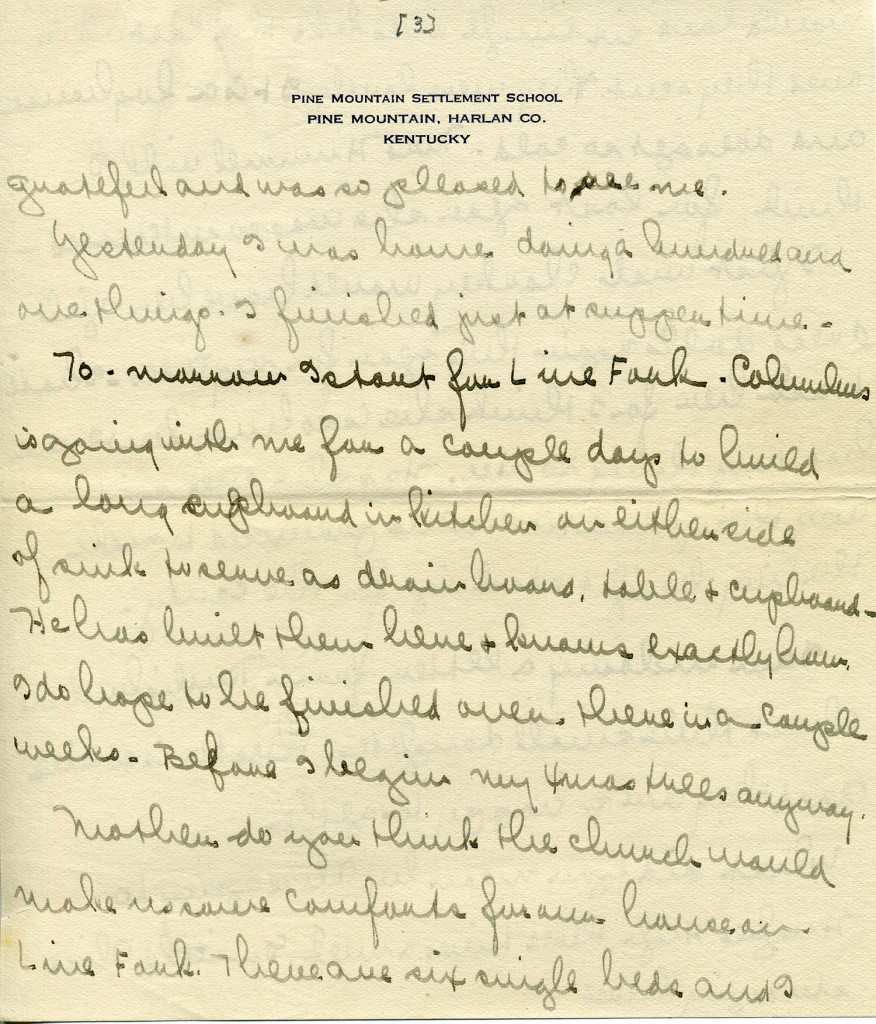 [3]
PINE MOUNTAIN SETTLEMENT SCHOOL
PINE MOUNTAIN, HARLAN CO.
KENTUCKY
grateful and was so pleased to see me.
Yesterday I was home doing a hundred and
one things. I finished just at supper time -
To-morrow I start for Line Fork. Columbus
is going with me for a couple days to build
a long cupboard in kitchen on either side
of sink to serve as drain board, table + cupboard -
He has built them here + knows exactly how.
I do hope to be finished over there in a couple
weeks - Before I begin my Xmas trees anyway.
Mother do you think the church would
make us some comforts for our house on
Line Fork. There are six single beds and I